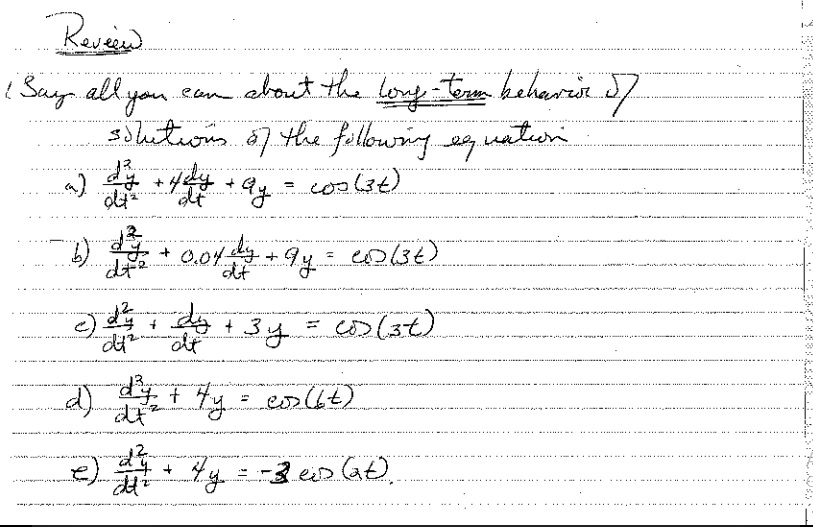 Review
1 Say all you can about the long-term behavior of
solutions of the following equation
a) d²y/dt² + 4dy/dt + 9y = cos(3t)
b) d²y/dt² + 0.04 dy/dt + 9y = cos(3t)
c) d²y/dt² + dy/dt + 3y = cos(3t)
d) d²y/dt² + 4y = cos(6t)
e) d²y/dt² + 4y = -3 cos(2t).